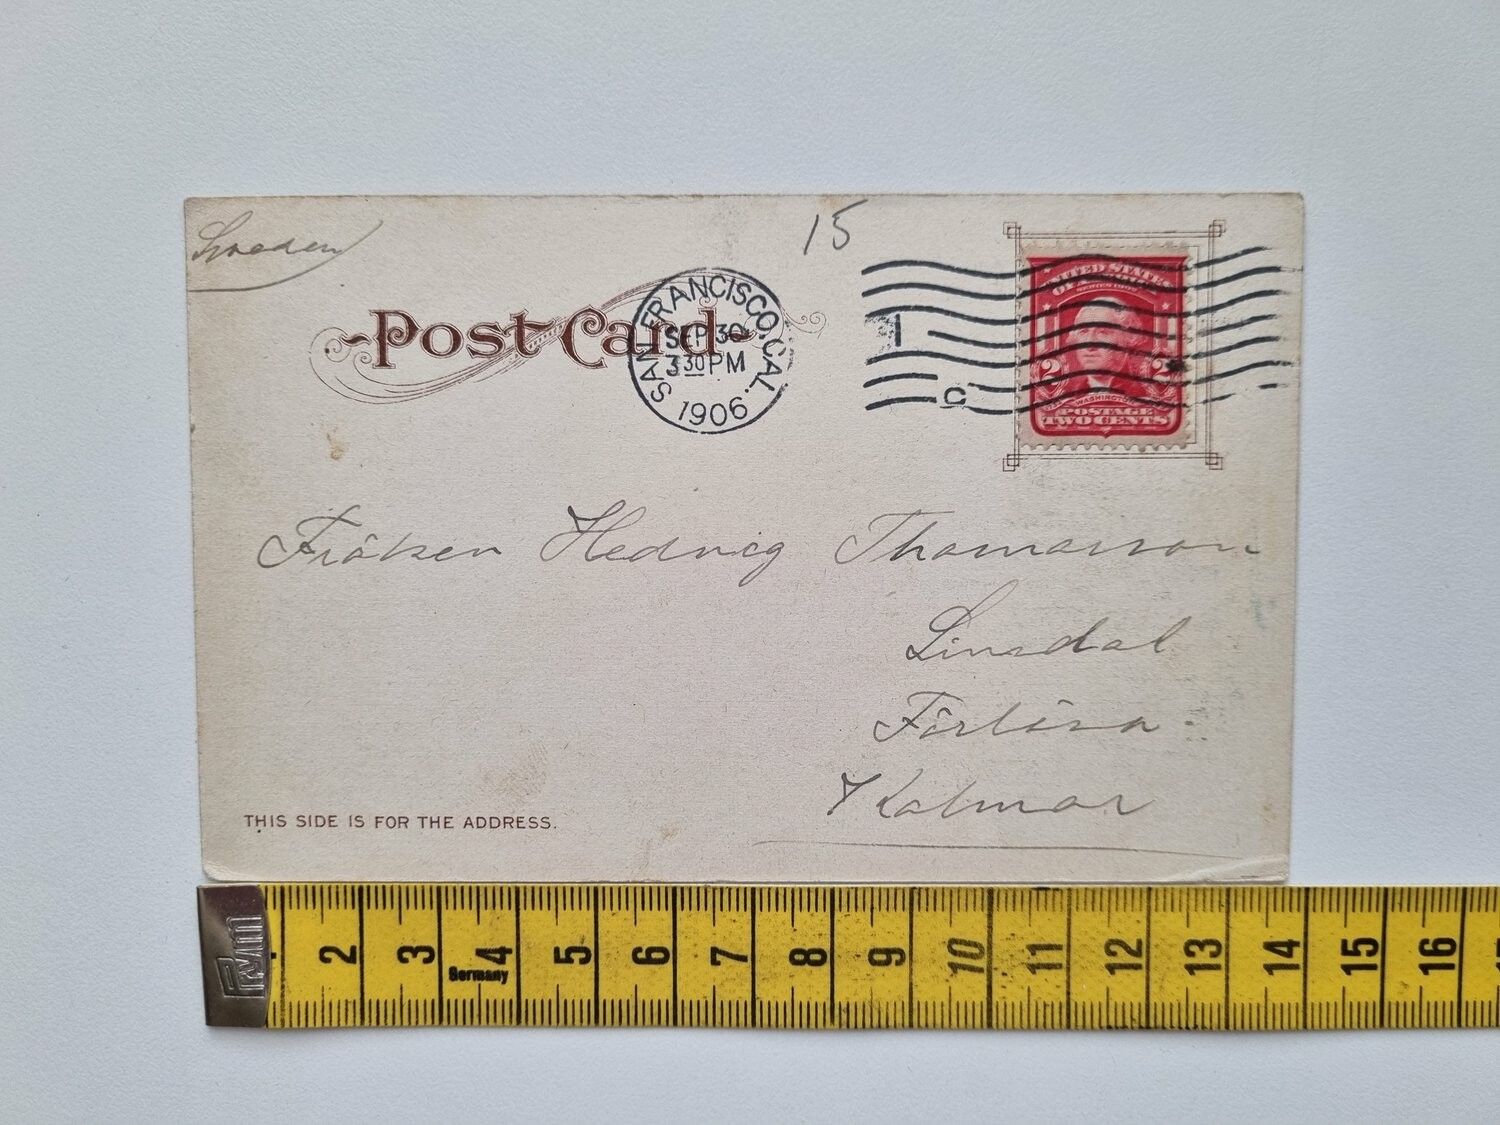 Sweden
15
Post Card
SAN FRANCISCO, CAL.
SEP 30
3 30 PM
1906
1
C
UNITED STATES
OF AMERICA
SERIES 1902
2 2
WASHINGTON
POSTAGE
TWO CENTS
Fröken Hedvig Thomasson
Linsdal
Förlösa
Kalmar
THIS SIDE IS FOR THE ADDRESS.
Prym
2 3 4 5 6 7 8 9 10 11 12 13 14 15 16
Germany